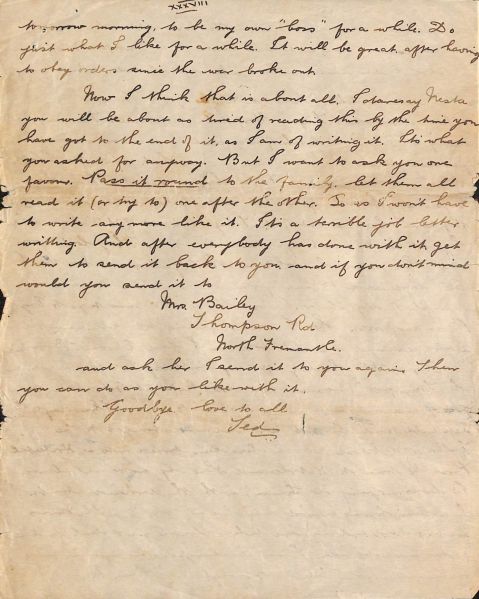 XXXVIII
tomorrow morning, to be my own "boss" for a while. Do
just what I like for a while. It will be great after having
to obey orders since the war broke out.
Now I think that is about all, I daresay Neska
you will be about as tired of reading this by the time you
have got to the end of it, as I am of writing it. Its what
you asked for anyway. But I want to ask you one
favour. Pass it round to the family, let them all
read it (or try to) one after the other. So as I won't have
to write anymore like it. Its a terrible job letter
writing. And after everybody has done with it get
them to send it back to you, and if you don't mind
would you send it to
Mrs. Bailey
Thompson Rd
North Fremantle.
and ask her I send it to you again. Then
you can do as you like with it.
Goodbye love to all
Ted